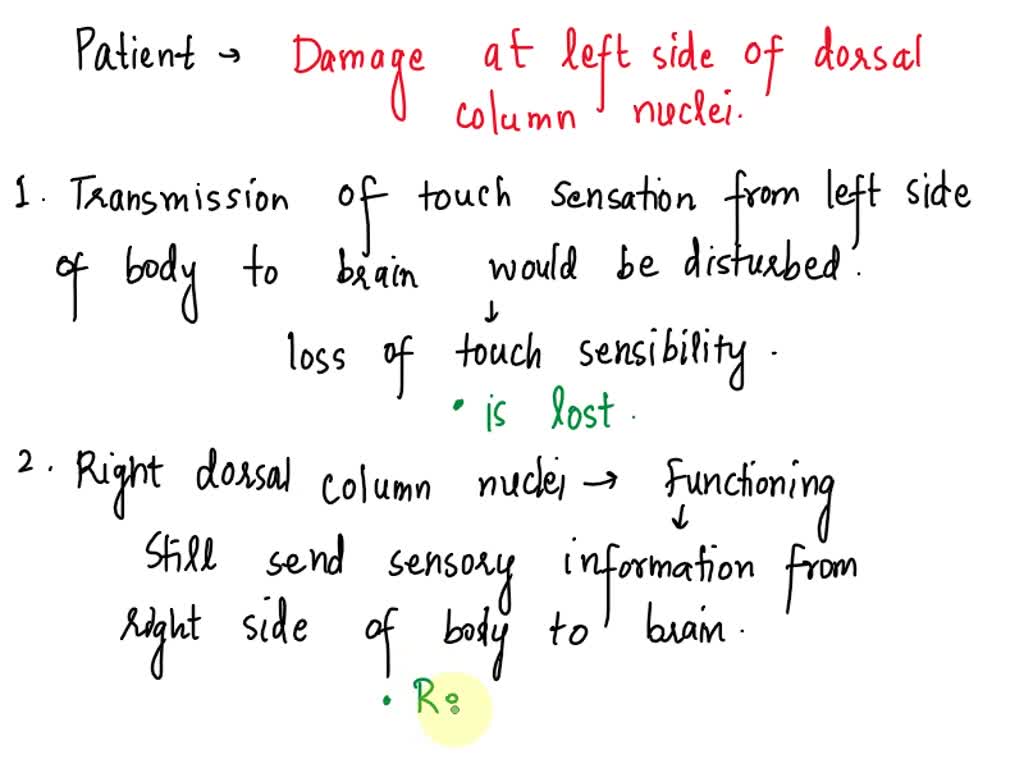 Patient → Damage at left side of dorsal
column nuclei.
1. Transmission of touch sensation from left side
of body to brain would be disturbed.
↓
loss of touch sensibility.
• is lost.
2. Right dorsal column nuclei → Functioning
↓
Still send sensory information from
right side of body to brain.
• R